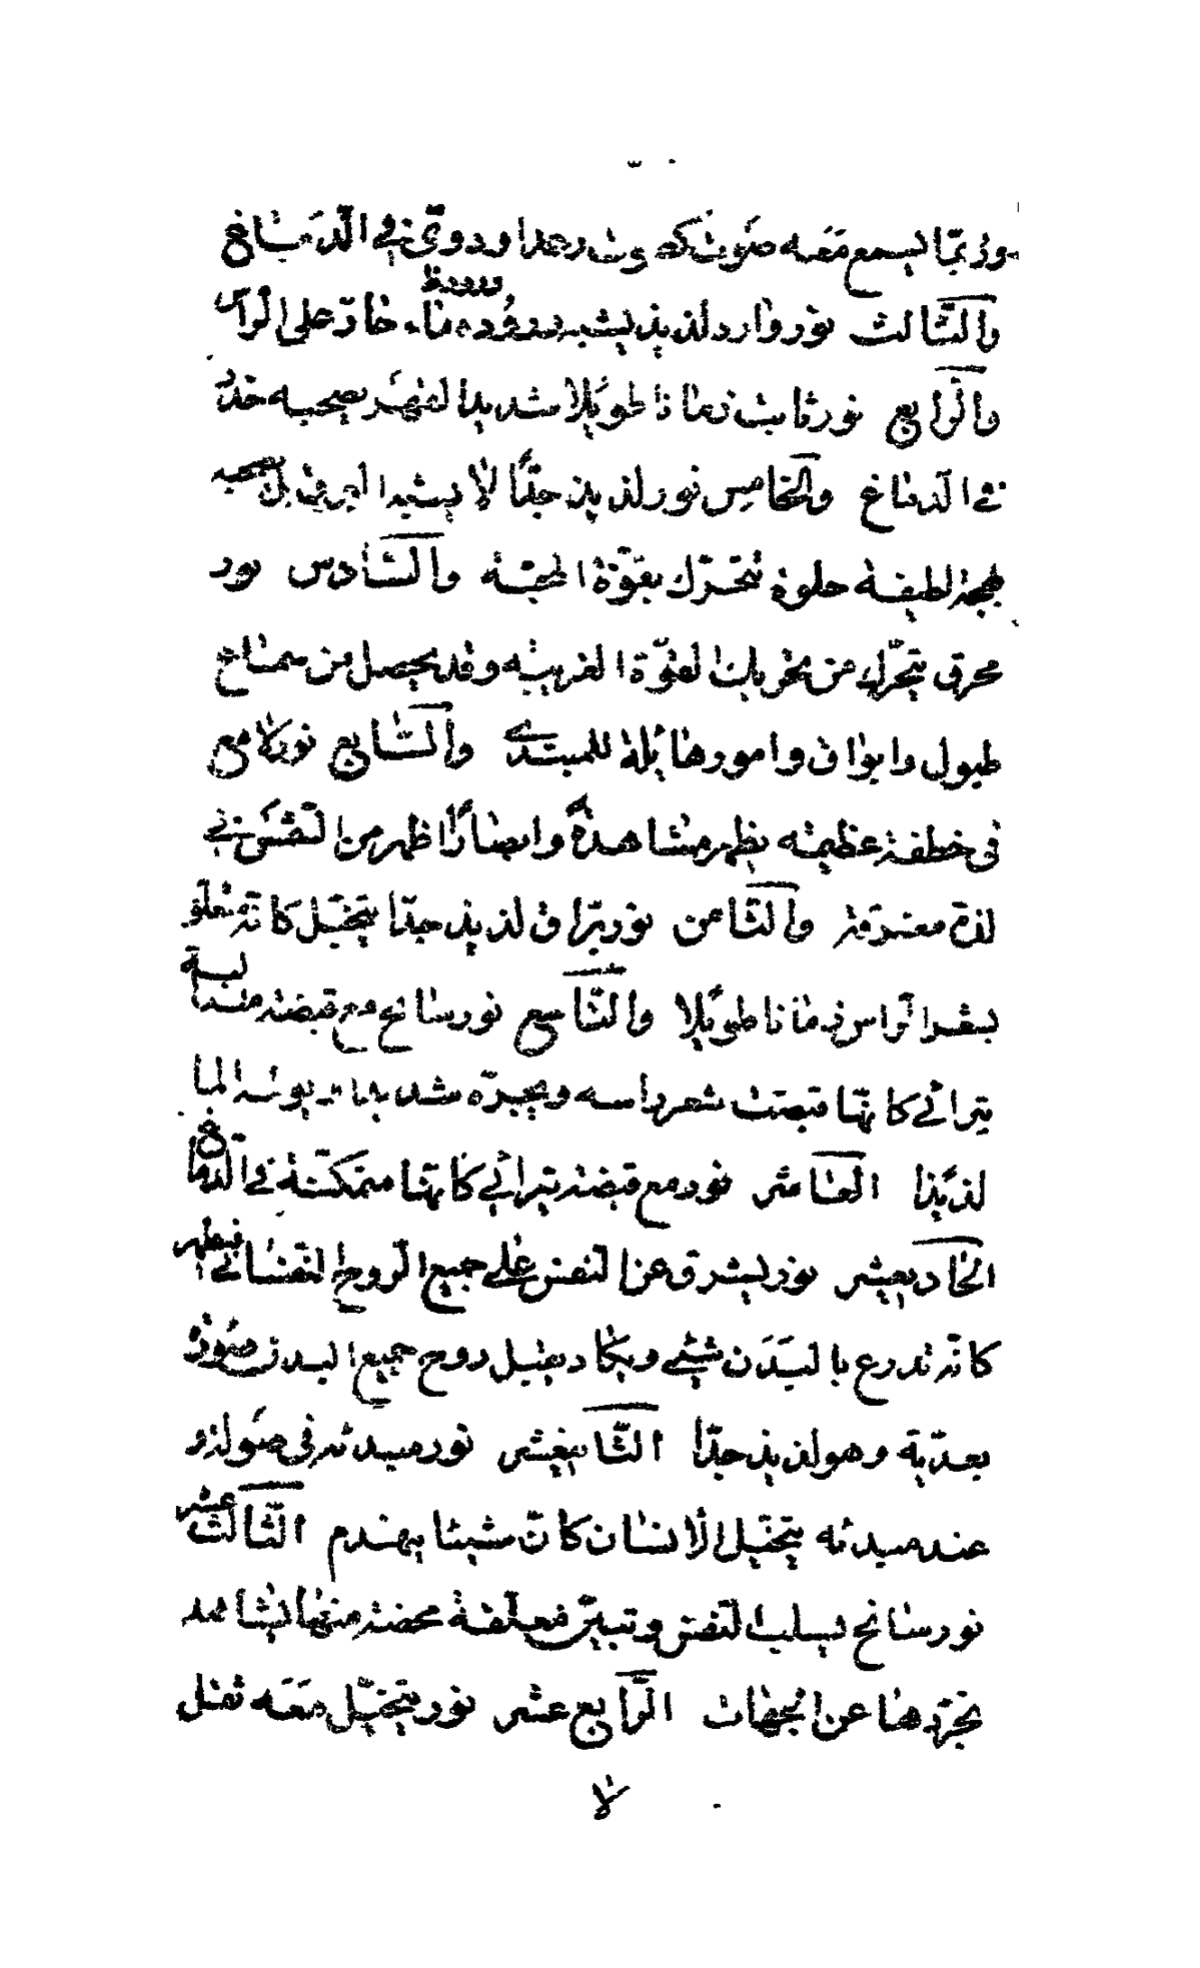 وربّما يسمع معه صوت كصوت رعد او دوىّ فى الدّماغ
والثّالث نور وارد لذيذ يشبه وروده ماء حارّ على الرّأس
والرّابع نور ثابت زمانا طويلا شديد القهر يصحبه خدر
فى الدماغ والخامس نور لذيذ جدّا لا يشبه البرق بل يصحبه
بهجة لطيفة حلوة تتحرّك بقوّة المحبّة والسّادس نور
محرق يتحرّك من تحريك القوّة العزيّة وقد يحصل من سماع
طبول وابواق وامور هائلة للمبتدى والسّابع نور لامع
فى خطفة عظيمة يظهر مشاهدة وابصارا اظهر من الشّمس فى
لذة مغرقة والثّامن نور برّاق لذيذ جدّا يتخيّل كانّه متعلّق
بشعر الرّاس زمانا طويلا والتّاسع نور سانح مع قبضة مثالية
يترائى كانّها قبضت شعر راسه ويجرّه شديدا ويولمه الما
لذيذا العاشر نور مع قبضة يترائى كانّها متمكّنة فى الدّماغ
الحاديعشر نور يشرق عن النّفس على جميع الرّوح النّفسانى فيظهر
كانّه تدرع بالبدن شيئ ويكاد يقبل روح جميع البدن صورة
بعدية وهو لذيذ جدّا الثّانيعشر نور مبدئه فى صولة و
عند مبدئه يتخيّل الانسان كانّ شيئا ينهدم الثّالث عشر
نور سانح يسلب النّفس وتبيّن معلّقة محضة منها يشاهد
تجرّدها عن الجهات الرّابع عشر نور يتخيّل معه ثقل
لا